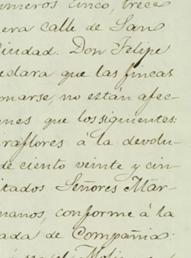 números cinco, trece
era calle de San
Ciudad. Don Felipe
eclara que las fincas
marse, no están afec-
nes que los siguientes:
raflores á la devolu-
de ciento veinte y cin-
itados Señores Mar-
manos, conforme á la
ada de Compañia